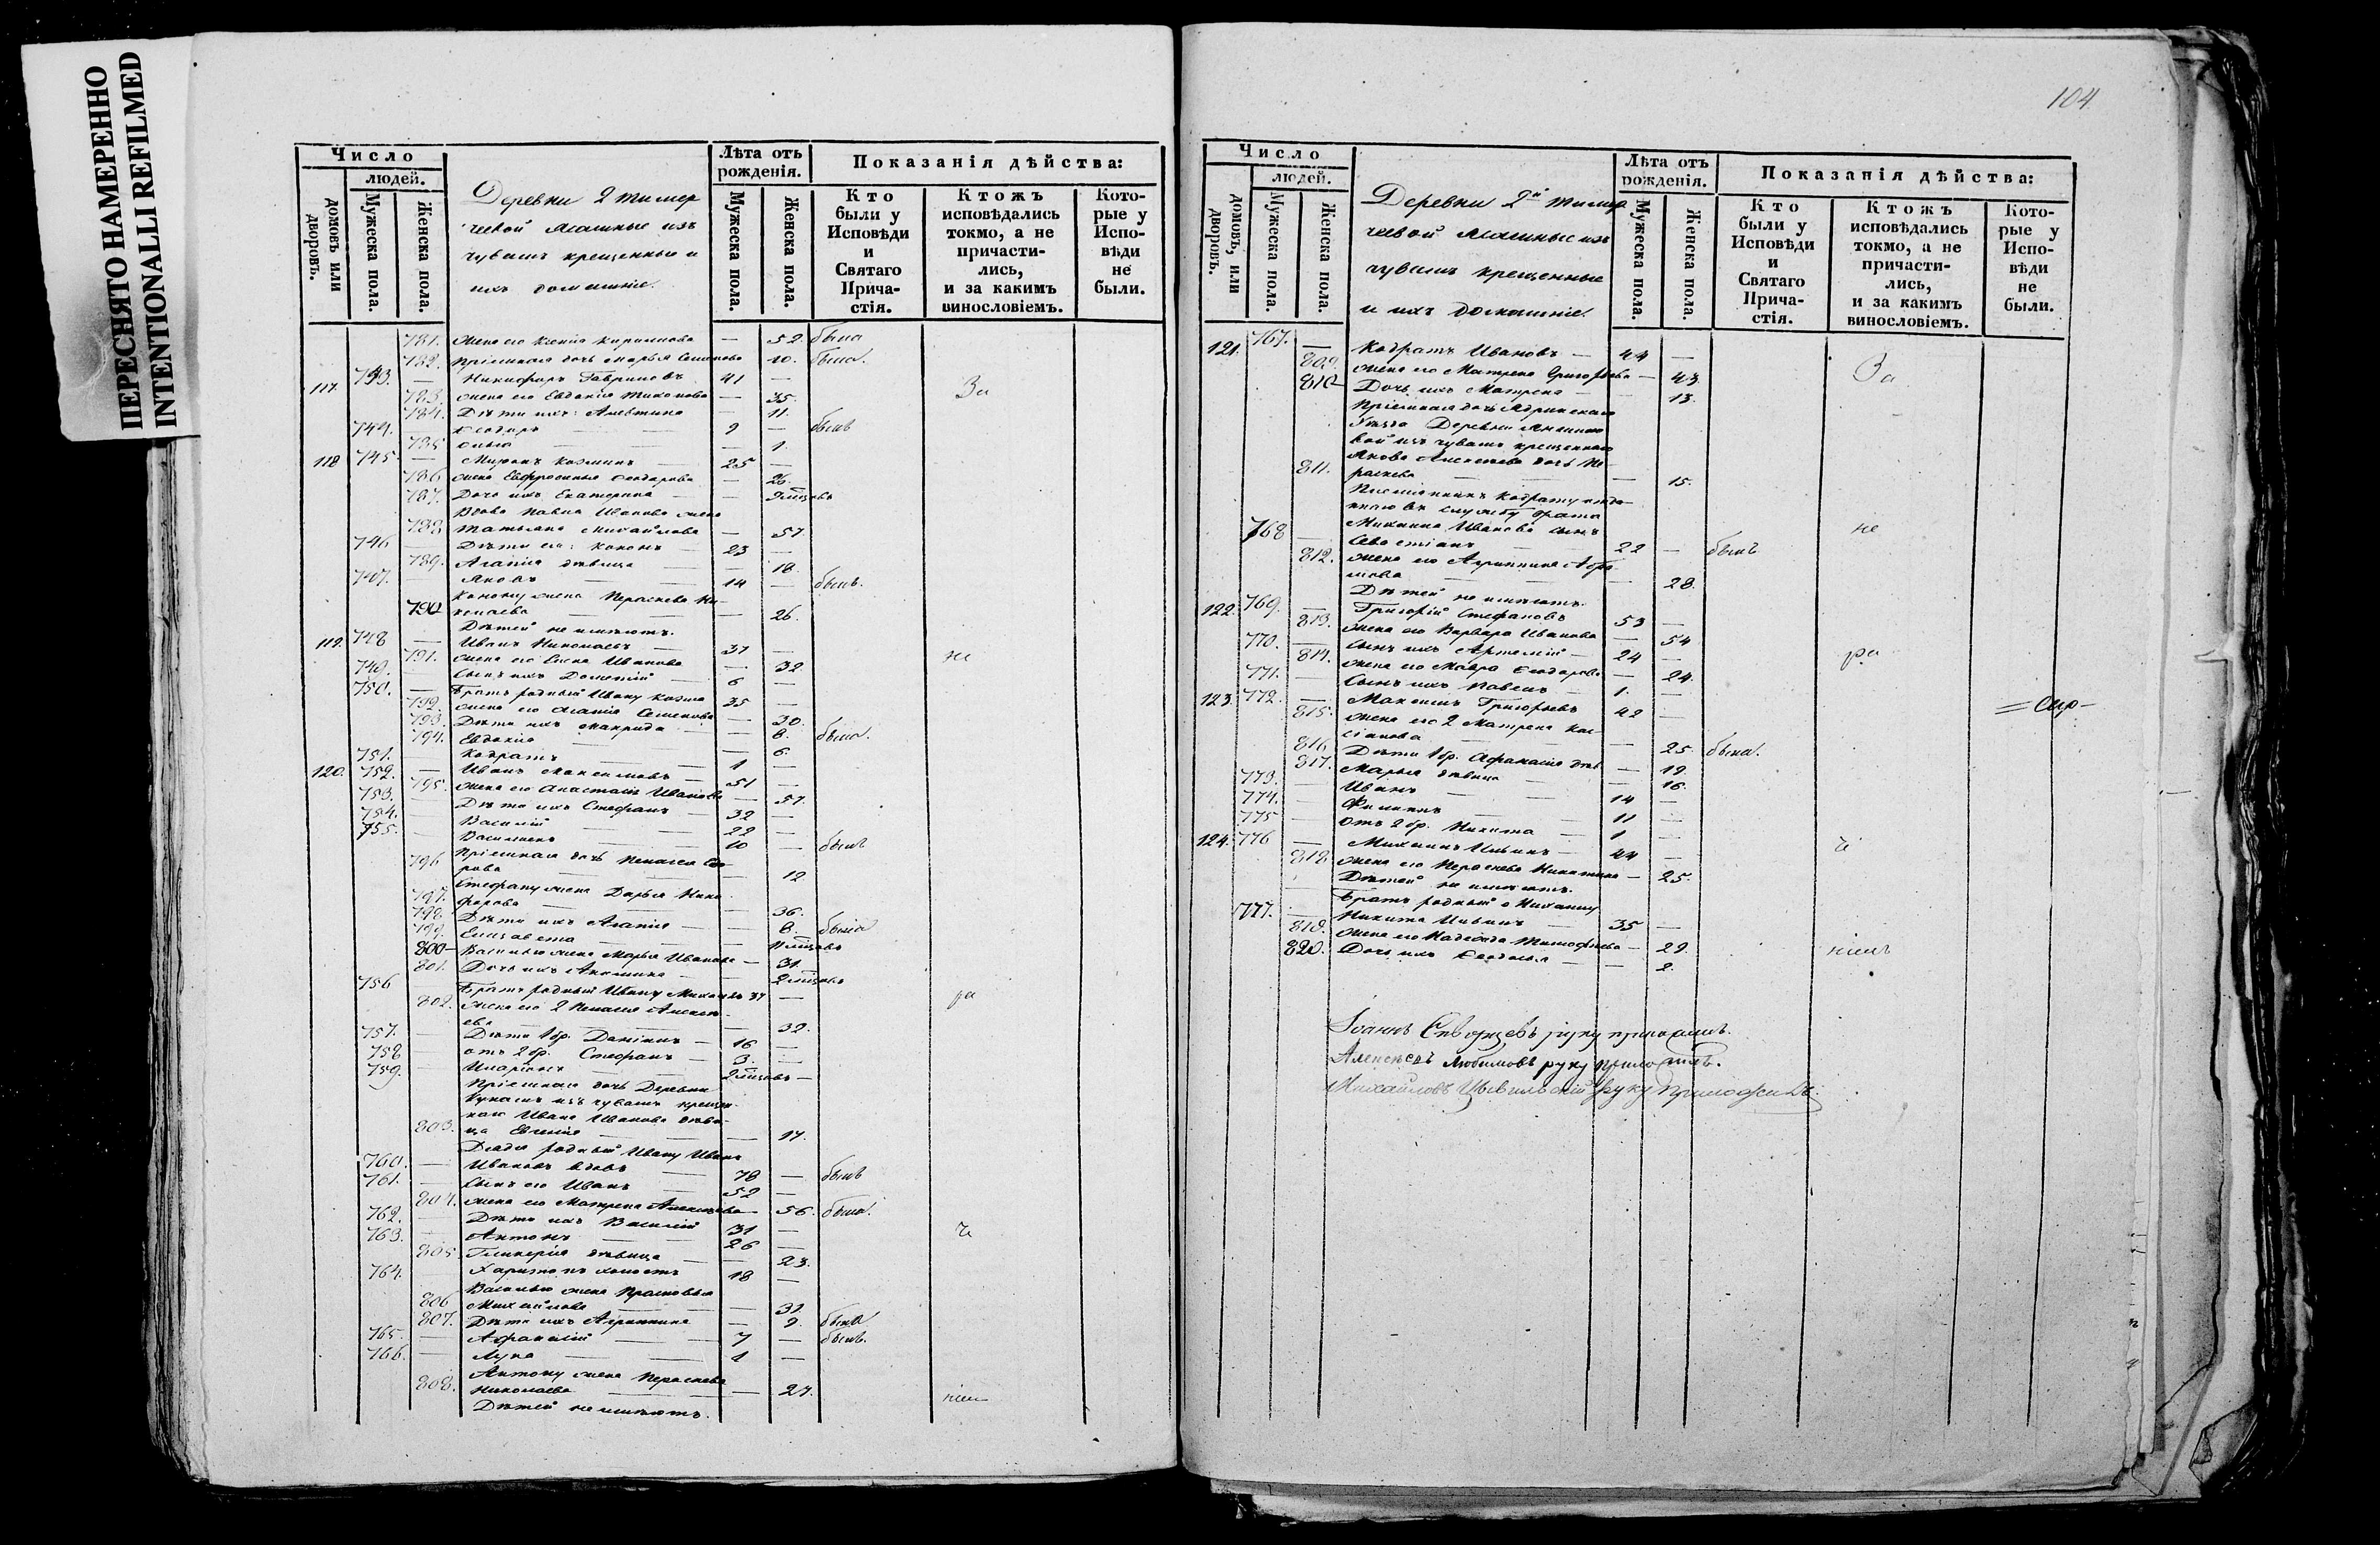 ПЕРЕСНЯТО НАМЕРЕННО
INTENTIONALLI REFILMED
Число
людей.
домовъ или дворовъ.
Мужеска пола.
Женска пола.
Деревни 2 Тимер
чеевой ясашные изъ
чувашъ крещенные и
ихъ домашніе.
Лѣта отъ рожденія.
Мужеска пола.
Женска пола.
Показанія дѣйства:
Кто были у Исповѣди и Святаго Прича- стія.
Ктожъ исповѣдались токмо, а не причасти- лись, и за какимъ винословіемъ.
Кото- рые у Испо- вѣди не были.
781. жена его Ксенія Кирилова — 52 была
782. Пріемная дочь Марья Семенова 10. была.
117. 743. — Никифоръ Гавриловъ 41 — За
783. жена его Евдокія Тихонова — 35.
784. Дѣти ихъ: Алевтина — 11.
744. Ѳеодоръ — 9 — былъ
785 — 1.
118 745 — Миронъ Козминъ — 25 —
786 жена Евфросинья Ѳеодорова — 26.
787. Дочь ихъ Екатерина — 9 мѣсяцовъ
Вдова Павла Иванова жена
788 Татьяна Михайлова — 57.
746 — Дѣти ея: Кононъ — 23 —
789. Агапія дѣвица — 18.
747. — Яковъ — 14 — былъ.
Конону жена Пераскева Ни-
790 колаева — 26.
Дѣтей не имѣютъ.
119. 748 — Иванъ Николаевъ — 37 —
791. жена его Елена Иванова — 32 не
749. — Сынъ ихъ Дометій — 6 —
750. — Братъ родный Ивану Козма 35 —
792. жена его Агапія Семенова — 30.
793. Дѣти ихъ Макрида — 8. была.
794. Евдокія — 6.
751. — Кодратъ — 1 —
120. 752. — Иванъ Максимовъ — 51 —
795. жена его Анастасія Иванова — 57.
753. Дѣти ихъ Стефанъ — 32 —
754. Василій — 22 —
755. — 10 — былъ
796 Пріемная дочь Пелагея
— 12
797. Стефану жена Дарья Ники-
форова — 36.
798. Дѣти ихъ Агапія — 8. была
799. Елизавета — мѣсяцовъ
800 — Василью жена Марья Иванова — 31.
801. Дочь ихъ Акилина — 2 мѣсяцовъ
756 Братъ родный Ивану 37 — ра
802. жена его 2 Пелагея Алексѣ-
ева — 32.
757. — Дѣти 1 бр. Даніилъ — 16 —
758 отъ 2 бр. Стефанъ — 3. —
759. Иларіонъ — 2 мѣсяцовъ —
Пріемная дочь Деревни
изъ чувашъ крещен-
наго Ивана Иванова дѣви-
803. ца Евгенія — 17.
Дядя родный Ивану Иванъ
760. — Ивановъ вдовъ — 78 — былъ
761. — Сынъ его Иванъ — 52 —
804. жена его Матрена Алексѣева — 56. была.
762. — Дѣти ихъ Василій — 31 —
763. — Антонъ — 26 — че
805. Гликерія дѣвица — 23.
764. Харитонъ холостъ 18 —
Василью жена Прасковья
806 Михайлова — 31.
807. Дѣти ихъ Агриппина — 9. была
765. — Афанасій — 7 — былъ.
766. — Лука — 1 —
Антону жена Пераскева
808. Николаева — 27. ніем
Дѣтей не имѣютъ.
104
Число
людей.
домовъ, или дворовъ.
Мужеска пола.
Женска пола.
Деревни 2й Тимер
чеевой ясашные изъ
чувашъ крещенные
и ихъ домашніе.
Лѣта отъ рожденія.
Мужеска пола.
Женска пола.
Показанія дѣйства:
Кто были у Исповѣди и Святаго Прича- стія.
Ктожъ исповѣдались токмо, а не причасти- лись, и за какимъ винословіемъ.
Кото- рые у Испо- вѣди не были.
121. 767. — Кодратъ Ивановъ — 44 — За
809. жена его Матрена Григорьева — 43.
810 Дочь ихъ Матрена — 13.
Пріемная дочь Ядринскаго
уѣзда Деревни
вой изъ чувашъ крещеннаго
Якова Алексѣева дочь Пе-
811. раскева — 15.
Племянникъ Кодрату отда-
ннаго въ службу брата
Михаила Иванова сынъ не
768 — Севастіанъ — 22 — былъ
812. жена его Агриппина Абра-
мова — 28.
Дѣтей не имѣютъ.
122. 769. — Григорій Стефановъ 53 —
813. жена его Варвара Иванова — 54
770. — Сынъ ихъ Артемій — 24 — ра
814. жена его Мавра Ѳеодорова — 24.
771. — Сынъ ихъ Павелъ — 1. —
123. 772. — Максимъ Григорьевъ 42 — = Сир —
815. жена его 2 Матрена Кас-
сіанова — 25 была.
816 Дѣти 1 бр. Афанасія дѣв — 19.
817. Марья дѣвица — 16.
773. Иванъ — 14 —
774. — Филиппъ — 11 —
775 — отъ 2 бр. Никита — 1 —
124. 776 — Михаилъ Ильинъ — 44 — че
818 жена его Пераскева Никитина — 25.
Дѣтей не имѣютъ.
Братъ родный Михаилу
777. — Никита Ильинъ — 35 —
819. жена его Надежда Тимофѣева — 29. ніемъ
820. Дочь ихъ Ѳеодосья — 2.
Іоаннъ Скворцевъ руку приложилъ.
Алексѣевъ Любимовъ руку приложилъ.
Михаиловъ Цывильскій руку приложилъ.